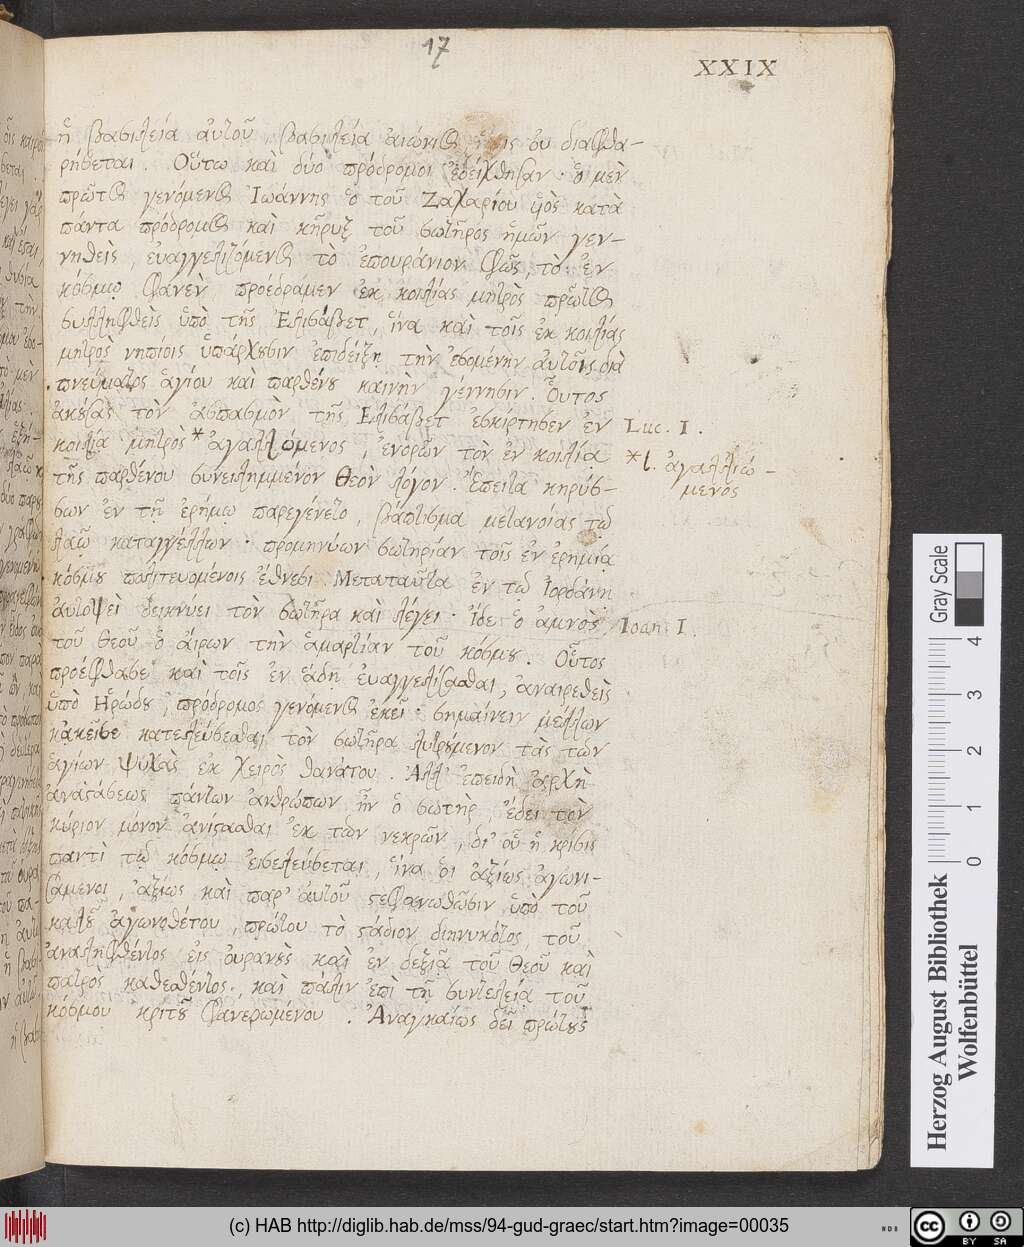 17
XXIX
ἡ βασιλεία αὐτοῦ, βασιλεία αἰώνιος ἥτις ου διαφθα-
ρήσεται. Οὕτω καὶ δύο πρόδρομοι ἐδείχθησαν· ὁ μὲν
πρῶτος γενόμενος Ἰωάννης ὁ τοῦ Ζαχαρίου ὑὸς κατὰ
πάντα πρόδρομος καὶ κῆρυξ τοῦ σωτῆρος ἡμῶν γεν-
νηθεὶς, ἐυαγγελιζόμενος τὸ ἐπουράνιον φῶς, τὸ ἐν
κόσμῳ φανὲν προέδραμεν ἐκ κοιλίας μητρὸς πρῶτος
συλληφθεὶς ὑπὸ τῆς Ἐλισάβετ, ἵνα καὶ τοῖς ἐκ κοιλίας
μητρὸς νηπίοις ὑπάρχουσιν ἐπιδείξῃ τὴν ἐσομένην ἀυτοῖς διὰ
πνεύματος ἁγίου καὶ παρθένου καινὴν γέννησιν. Οὗτος
ἀκούσας τὸν ἀσπασμὸν τῆς Ἐλισάβετ ἐσκίρτησεν ἐν
Luc. I.
κοιλίᾳ μητρὸς * ἀγαλλόμενος, ἐνορῶν τὸν ἐν κοιλίᾳ
*l. ἀγαλλιώ-
μενος
τῆς παρθένου συνειλημμένον Θεὸν λόγον. Ἔπειτα κηρύσ-
σων ἐν τῇ ἐρήμῳ παρεγένετο, βάπτισμα μετανοίας τῷ
λαῷ καταγγέλλων· προμηνύων σωτηρίαν τοῖς ἐν ἐρημίᾳ
κόσμου πολιτευομένοις ἔθνεσι. Μεταταῦτα ἐν τῷ Ἰορδάνῃ
ἀυτοψεὶ δεικνύει τὸν σωτῆρα καὶ λέγει· Ἴδε ὁ ἀμνὸς
Ioan. I.
τοῦ Θεοῦ ὁ ἄιρων τὴν ἁμαρτίαν τοῦ κόσμου. Οὗτος
προέφθασε καὶ τοῖς ἐν ἅδῃ ἐυαγγελίσασθαι, ἀναιρεθεὶς
ὑπὸ Ἡρώδου, πρόδρομος γενόμενος ἐκεῖ· σημαίνειν μέλλων
κἀκεῖσε κατελεύσεσθαι τὸν σωτῆρα λυτρούμενον τὰς τῶν
ἁγίων ψυχὰς ἐκ χειρὸς θανάτου. Ἀλλ' ἐπειδὴ ἀρχὴ
ἀναστάσεως πάντων ἀνθρώπων ἦν ὁ σωτὴρ, ἔδει τὸν
κύριον μόνον ἀνίστασθαι ἐκ τῶν νεκρῶν, δι' οὗ ἡ κρίσις
παντὶ τῷ κόσμῳ εἰσελεύσεται, ἵνα ὁι ἀξίως ἀγωνι-
σάμενοι, ἀξίως καὶ παρ' ἀυτοῦ στεφανωθῶσιν ὑπὸ τοῦ
καλοῦ ἀγωνοθέτου, πρώτου τὸ στάδιον διηνυκότος, τοῦ
ἀναληφθέντος εἰς ὀυρανοὺς καὶ ἐν δεξιᾷ τοῦ Θεοῦ καὶ
πατρὸς καθεσθέντος, καὶ πάλιν ἐπι τῇ συντελείᾳ τοῦ
κόσμου κριτοῦ φανερωμένου. Ἀναγκαίως δεῖ πρώτους
Gray Scale
0 1 2 3 4
Herzog August Bibliothek
Wolfenbüttel
(c) HAB http://diglib.hab.de/mss/94-gud-graec/start.htm?image=00035
WDB
cc BY SA